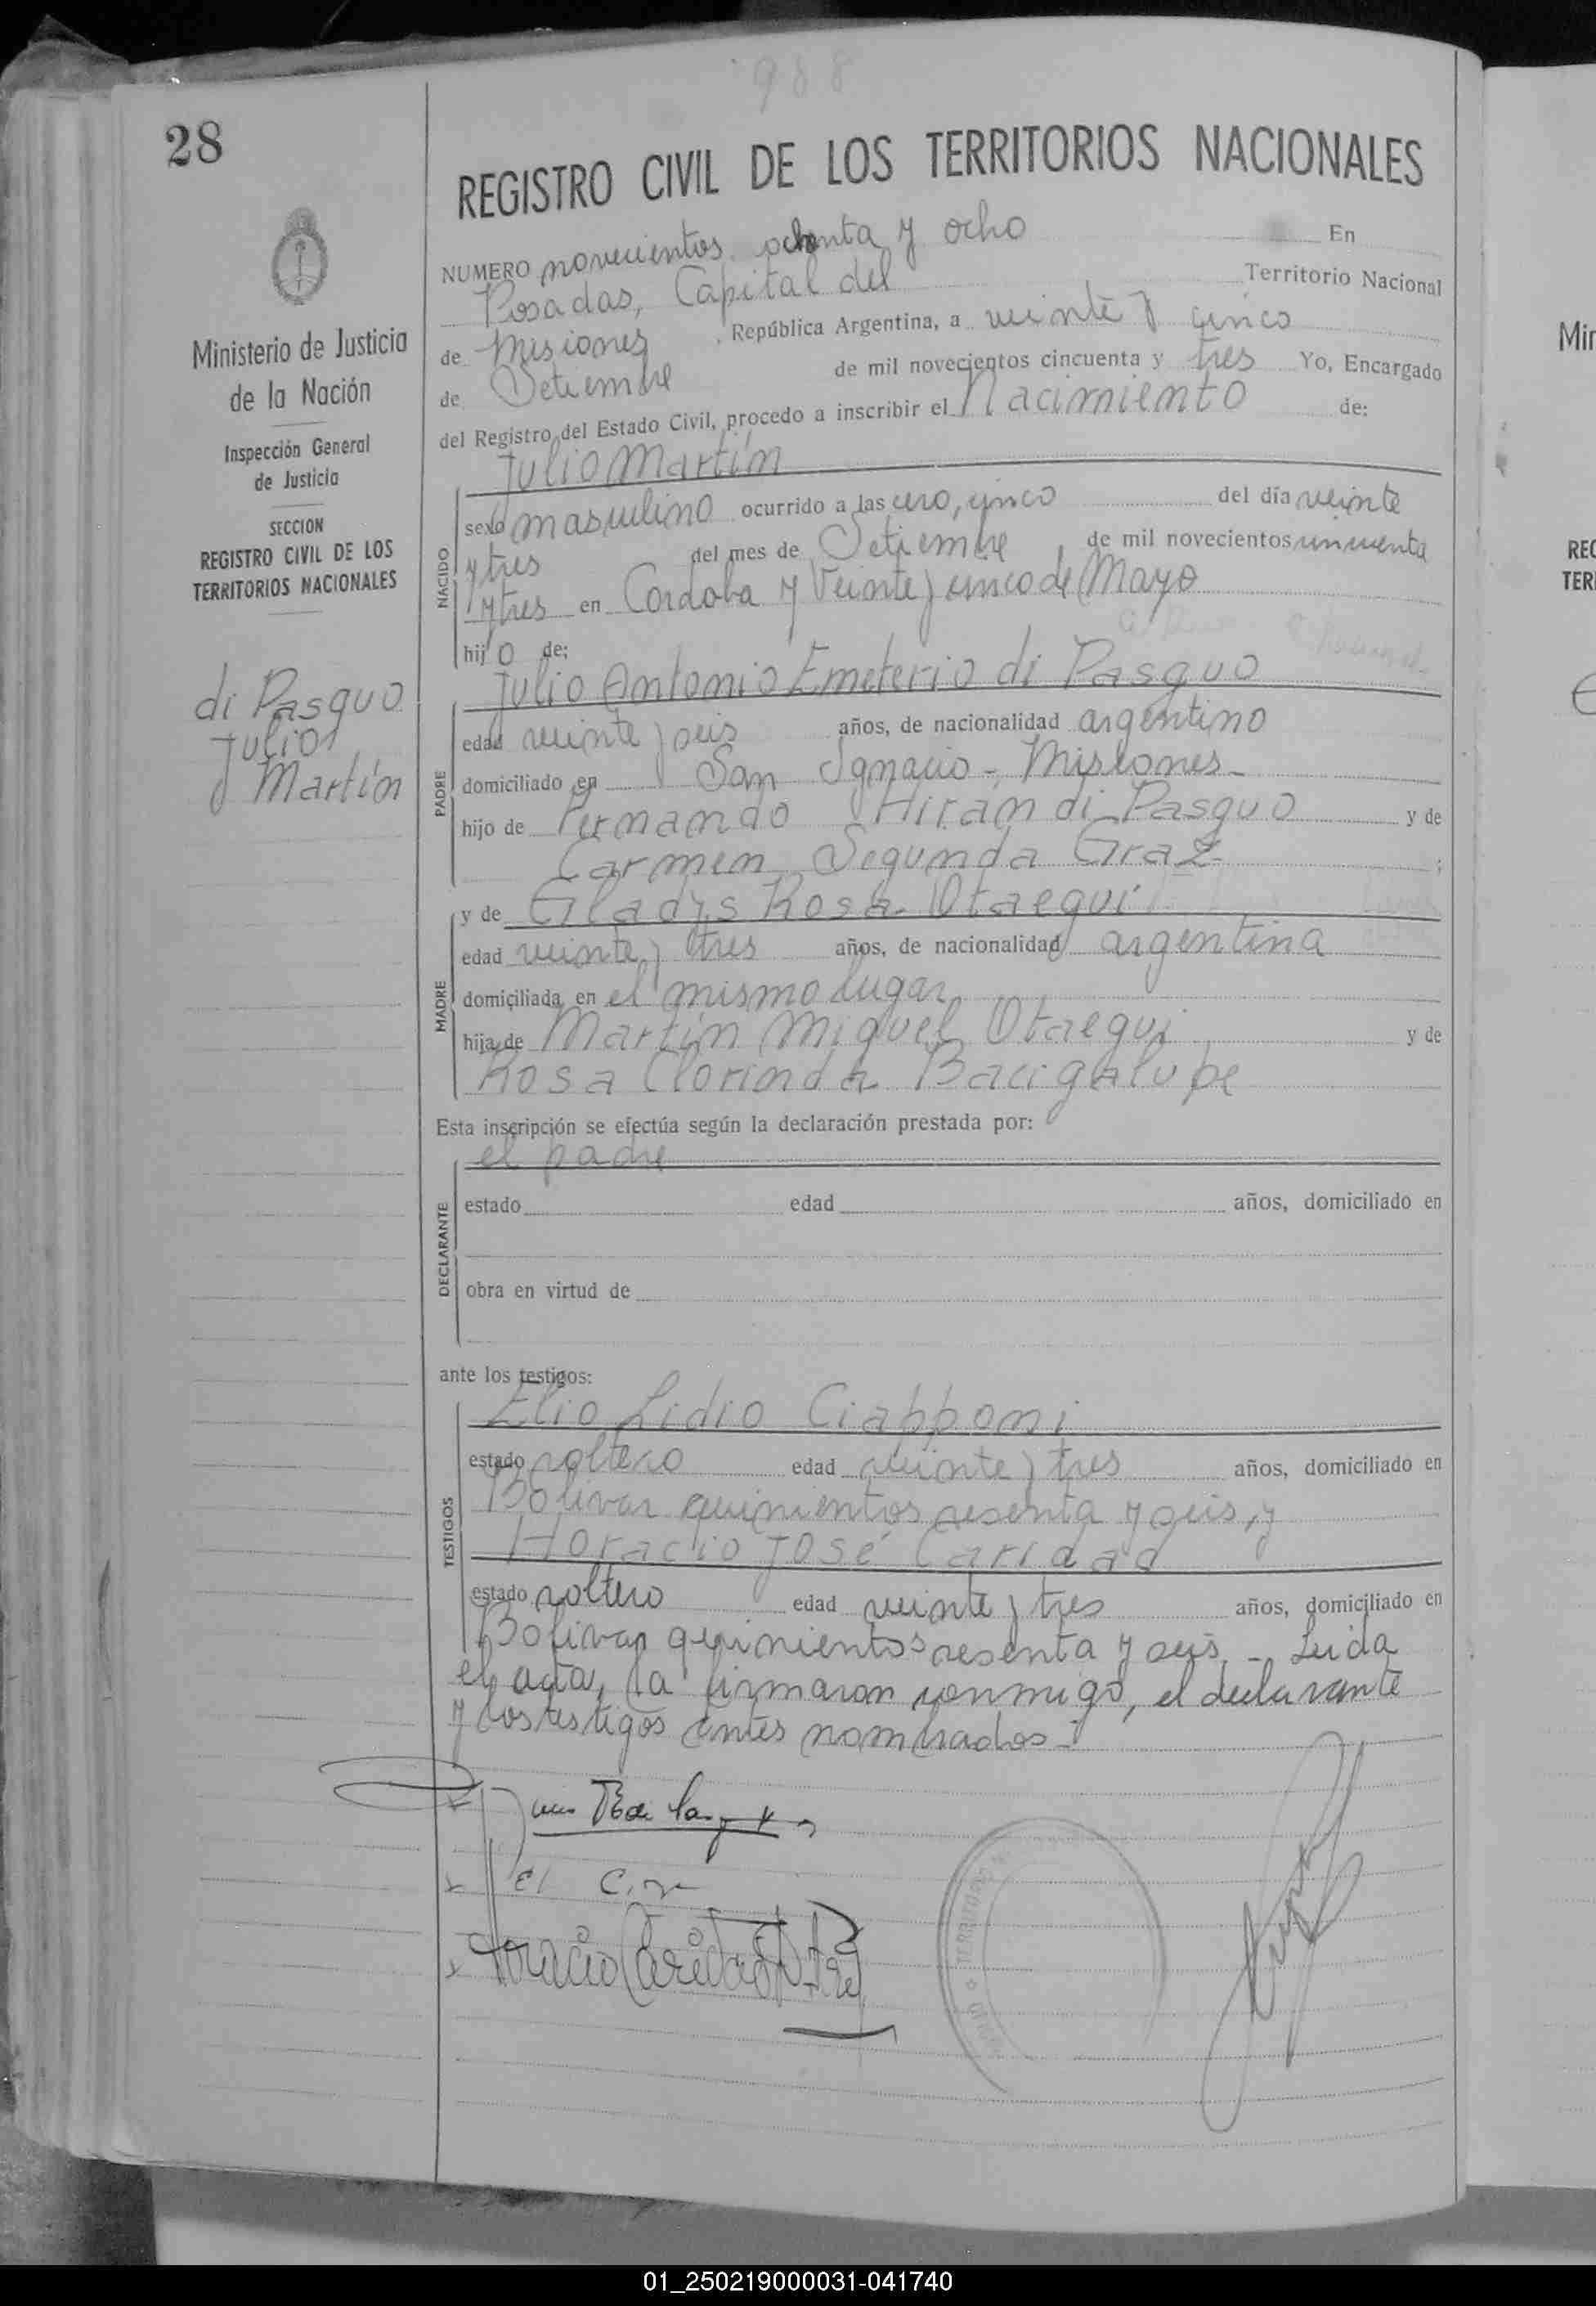 988
28
REGISTRO CIVIL DE LOS TERRITORIOS NACIONALES
Ministerio de Justicia
de la Nación
Inspección General
de Justicia
SECCION
REGISTRO CIVIL DE LOS
TERRITORIOS NACIONALES
di Pasquo
Julio
Martín
NUMERO novecientos ochenta y ocho En
Posadas, Capital del Territorio Nacional
de Misiones, República Argentina, a veinte y cinco
de Setiembre de mil novecientos cincuenta y tres Yo, Encargado
del Registro del Estado Civil, procedo a inscribir el Nacimiento de:
Julio Martín
NACIDO
sexo masculino ocurrido a las cero, cinco del día veinte
y tres del mes de Setiembre, de mil novecientos cincuenta
y tres en Cordoba y Veinte y cinco de Mayo
hijo de:
Julio Antonio Emeterio di Pasquo
PADRE
edad veinte y seis años, de nacionalidad argentino
domiciliado en San Ignacio - Misiones -
hijo de Fernando Hirán di Pasquo y de
Carmen Segunda Graz ;
y de Gladys Rosa Otaegui
MADRE
edad veinte y tres años, de nacionalidad argentina
domiciliada en el mismo lugar
hija de Martín Miguel Otaegui y de
Rosa Clorinda Bacigalupe
Esta inscripción se efectúa según la declaración prestada por:
el padre
DECLARANTE
estado edad años, domiciliado en
obra en virtud de
ante los testigos:
Elio Lidio Ciapponi
TESTIGOS
estado soltero edad veinte y tres años, domiciliado en
Bolivar quinientos sesenta y seis, y
Horacio José Caridad
estado soltero edad veinte y tres años, domiciliado en
Bolivar quinientos sesenta y seis. - Leida
el acta, la firmaron conmigo, el declarante
y los testigos antes nombrados -
Horacio Caridad
TERRITORIOS
Min
REG
TER
01_250219000031-041740